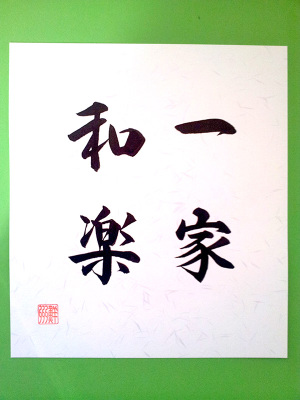 一家
和楽